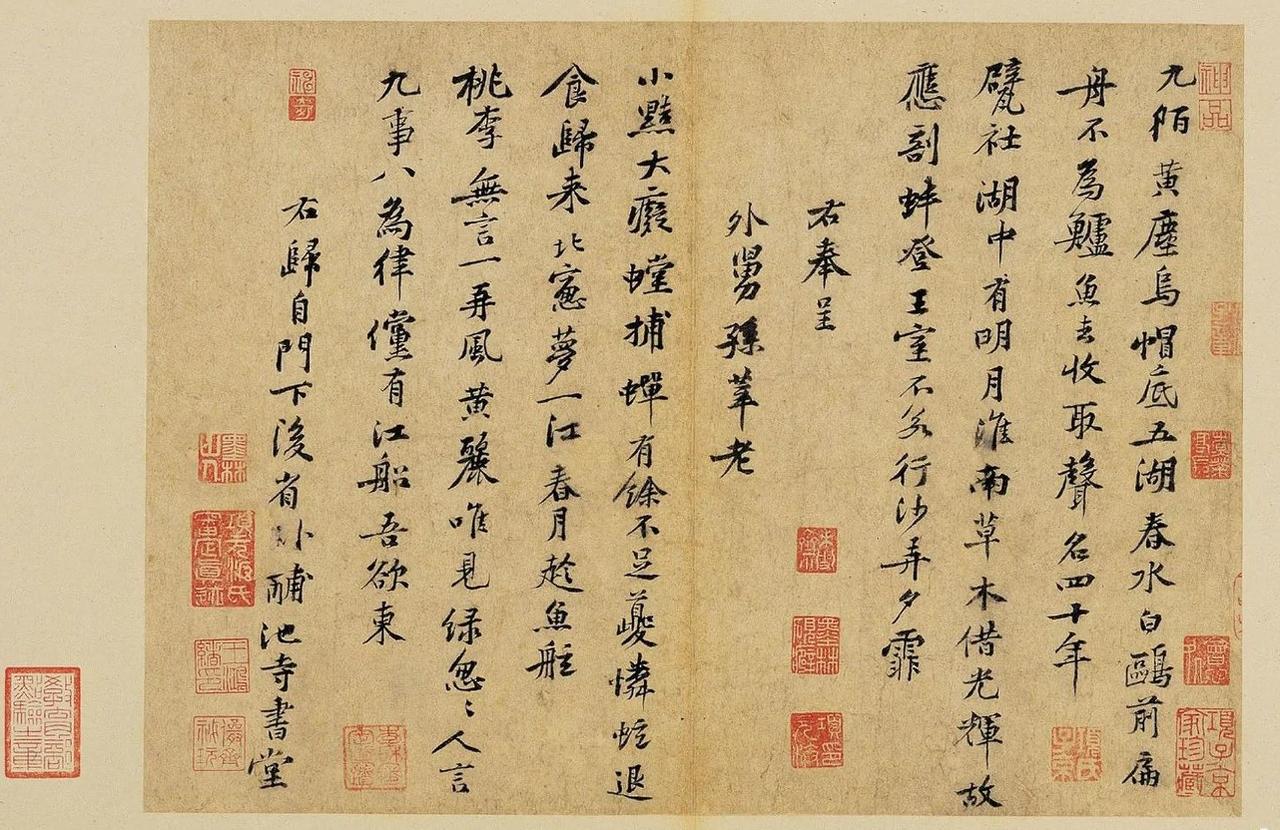 神品
項子京家珍藏
九陌黄塵烏帽底五湖春水白鷗前扁
舟不為鱸魚去收取聲名四十年
甓社湖中有明月淮南草木借光輝故
應剖蚌登王室不若行沙弄夕霏
右奉呈
外舅孫莘老
小黠大癡螗捕蟬有餘不足夔憐蚿退
食歸来北窻夢一江春月趁魚舡
桃李無言一再風黄麗唯見緑怱〻人言
九事八為律儻有江船吾欲東
右歸自門下後省卧酺池寺書堂
墨林山人